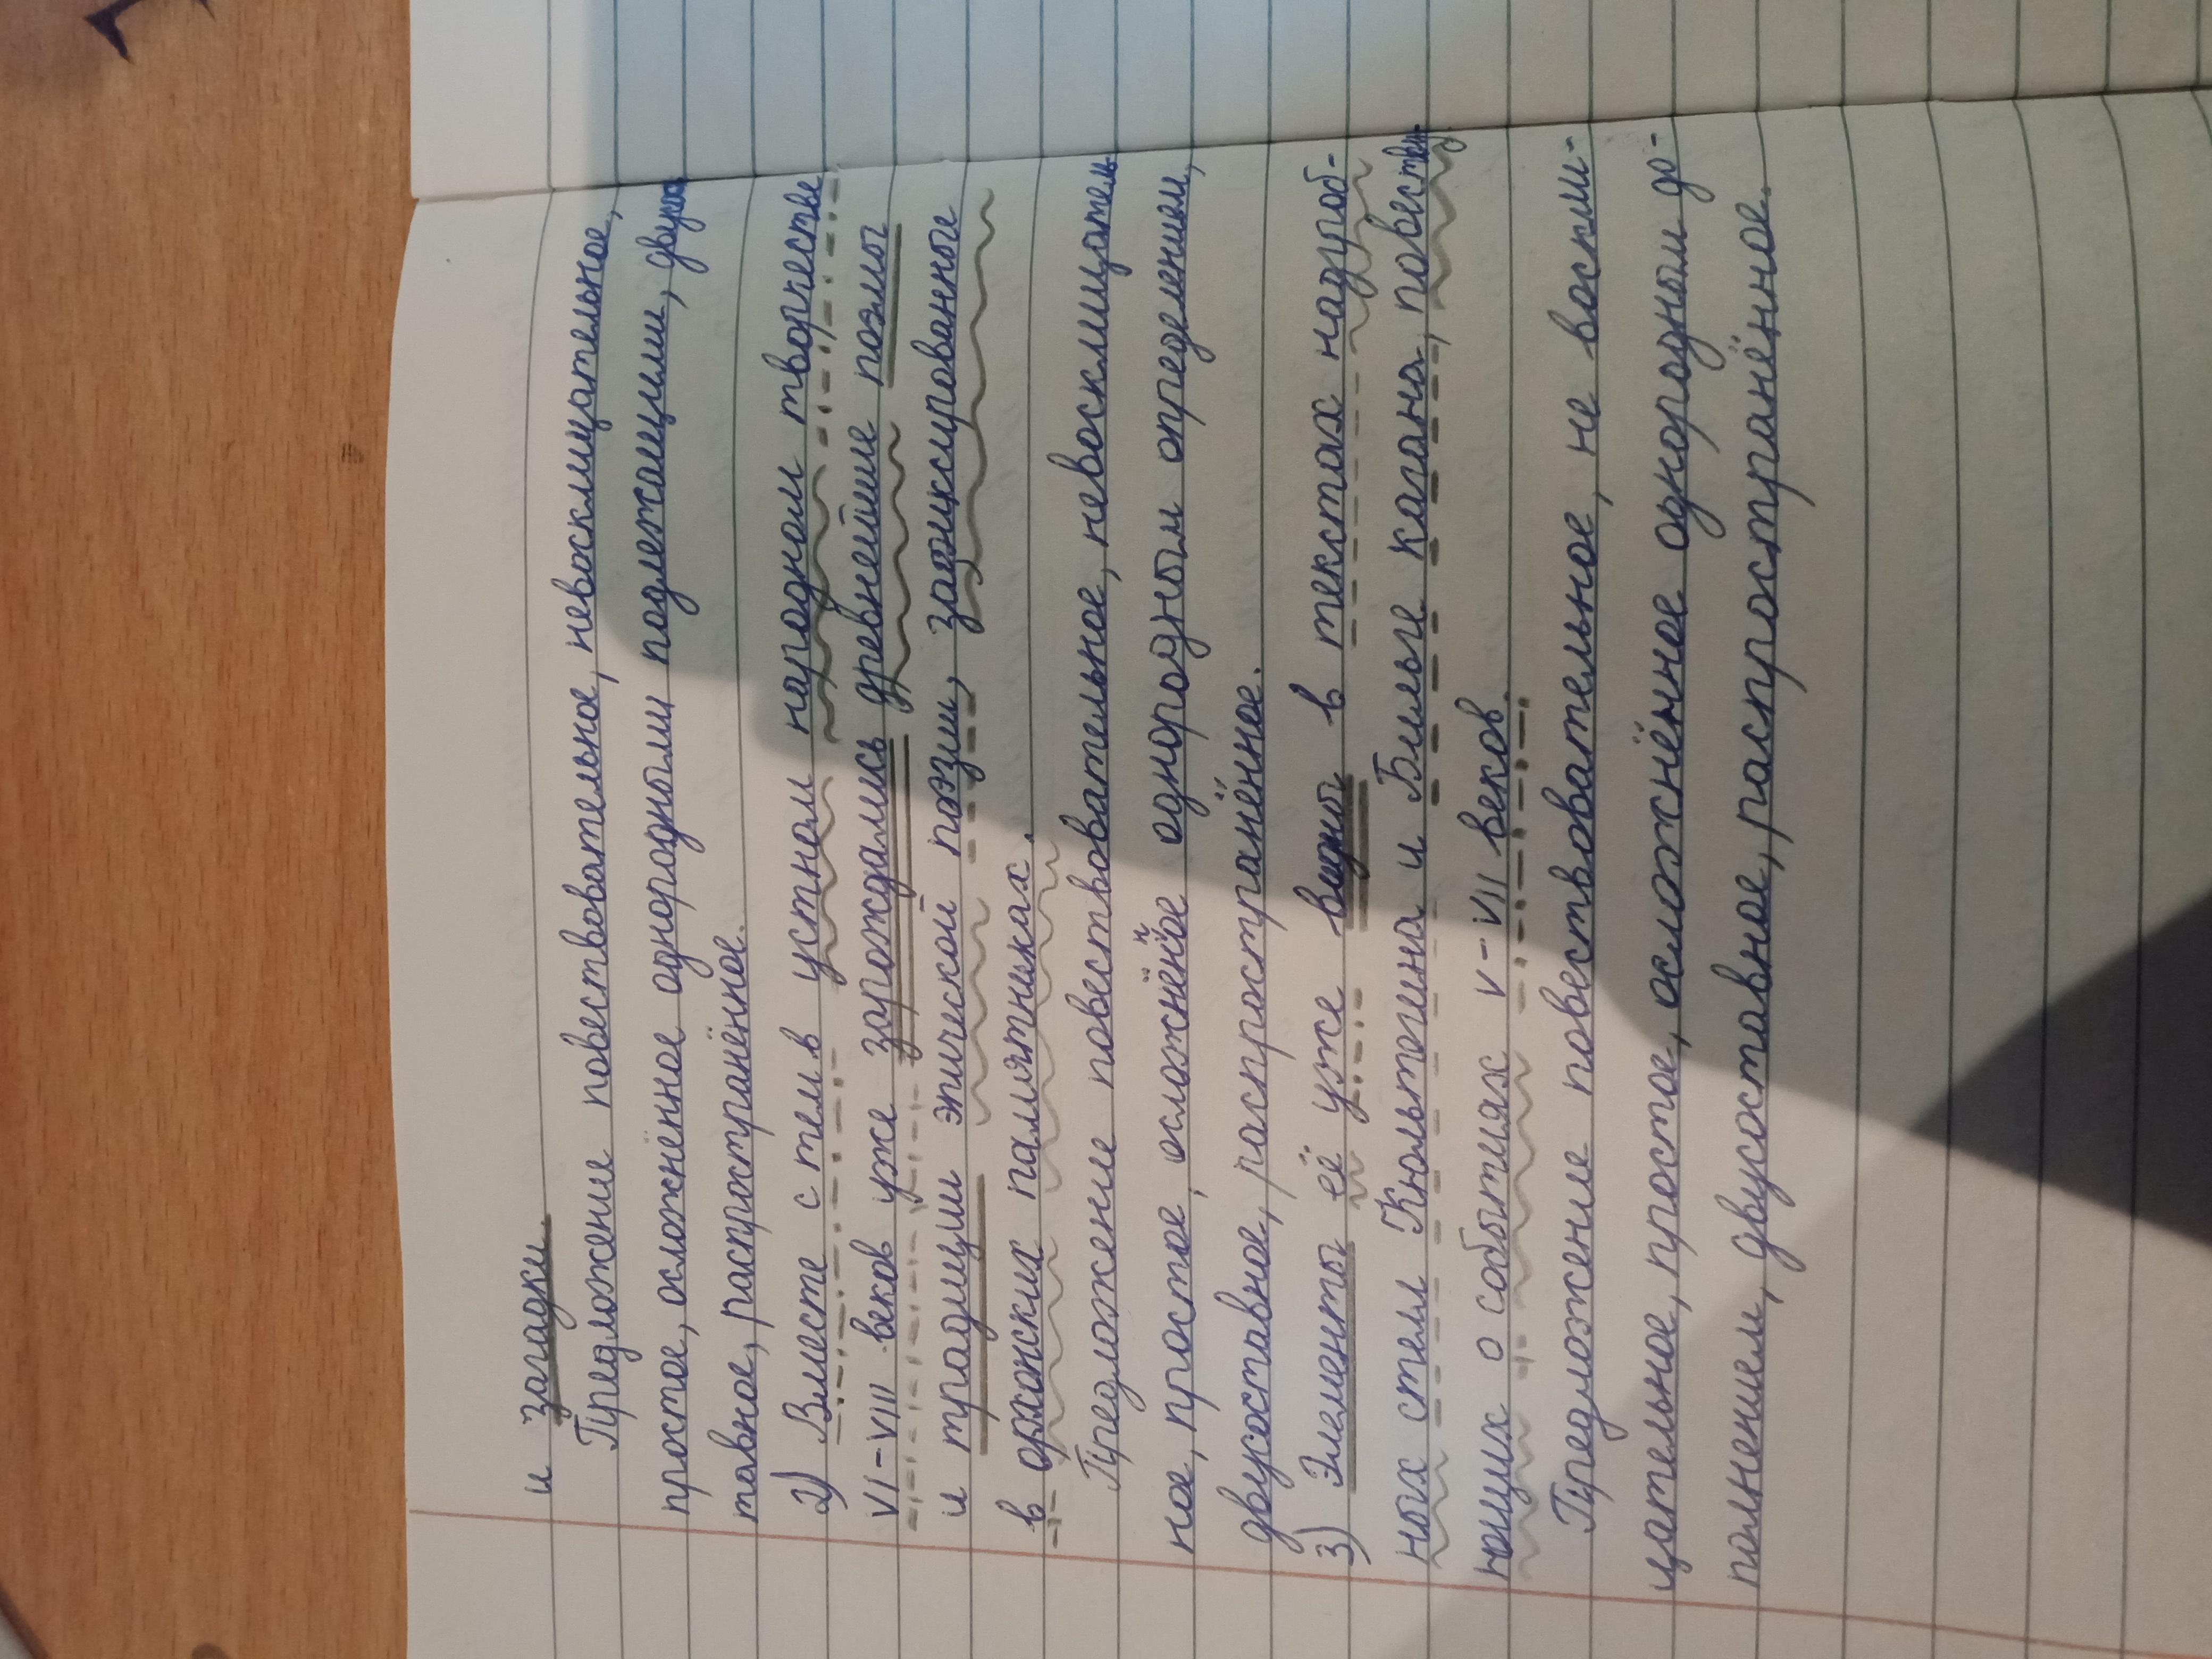 и загадки.
Предложение повествовательное, невосклицательное,
простое, осложнённое однородными подлежащими, двусос
тавное, распространённое.
2) Вместе с тем в устном народном творчестве
VI-VIII веков уже зарождались древнейшие поэмы
и традиции эпической поэзии, зафиксированные
в орхонских памятниках.
Предложение повествовательное, невосклицатель
ное, простое, осложнённое однородным определением,
двусоставное, распространённое.
3) Элементы её уже видны в текстах надгроб-
ных стел Кюльтегина и Бильге кагана, повеству
ющих о событиях V-VII веков.
Предложение повествовательное, не воскли-
цательное, простое, осложнённое однородным до-
полнением, двусоставное, распространённое.